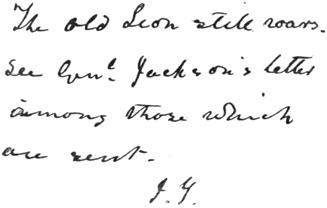 The old Lion still roars.
See Genl. Jackson's letter
among those which
are sent.
J. Y.